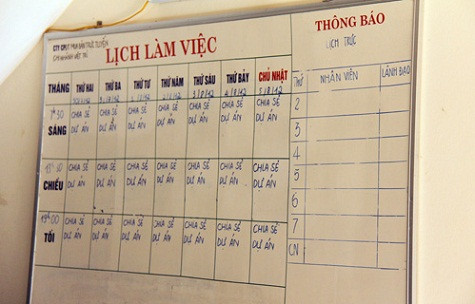 CTY CPĐT MUA BÁN TRỰC TUYẾN
CHI NHÁNH VIỆT TRÌ
LỊCH LÀM VIỆC
THÁNG THỨ HAI THỨ BA THỨ TƯ THỨ NĂM THỨ SÁU THỨ BẢY CHỦ NHẬT
3/8/12 4/8/12 5/8/12
7h30 CHIA SẺ CHIA SẺ CHIA SẺ CHIA SẺ CHIA SẺ CHIA SẺ CHIA SẺ
SÁNG DỰ ÁN DỰ ÁN DỰ ÁN DỰ ÁN DỰ ÁN DỰ ÁN DỰ ÁN
CHIA SẺ CHIA SẺ CHIA SẺ CHIA SẺ CHIA SẺ CHIA SẺ CHIA SẺ
CHIỀU DỰ ÁN DỰ ÁN DỰ ÁN DỰ ÁN DỰ ÁN DỰ ÁN DỰ ÁN
19h00 CHIA SẺ CHIA SẺ CHIA SẺ CHIA SẺ CHIA SẺ CHIA SẺ CHIA SẺ
TỐI DỰ ÁN DỰ ÁN DỰ ÁN DỰ ÁN DỰ ÁN DỰ ÁN DỰ ÁN
THÔNG BÁO
LỊCH TRỰC
THỨ NHÂN VIÊN LÃNH ĐẠO
2
3
4
5
6
7
CN